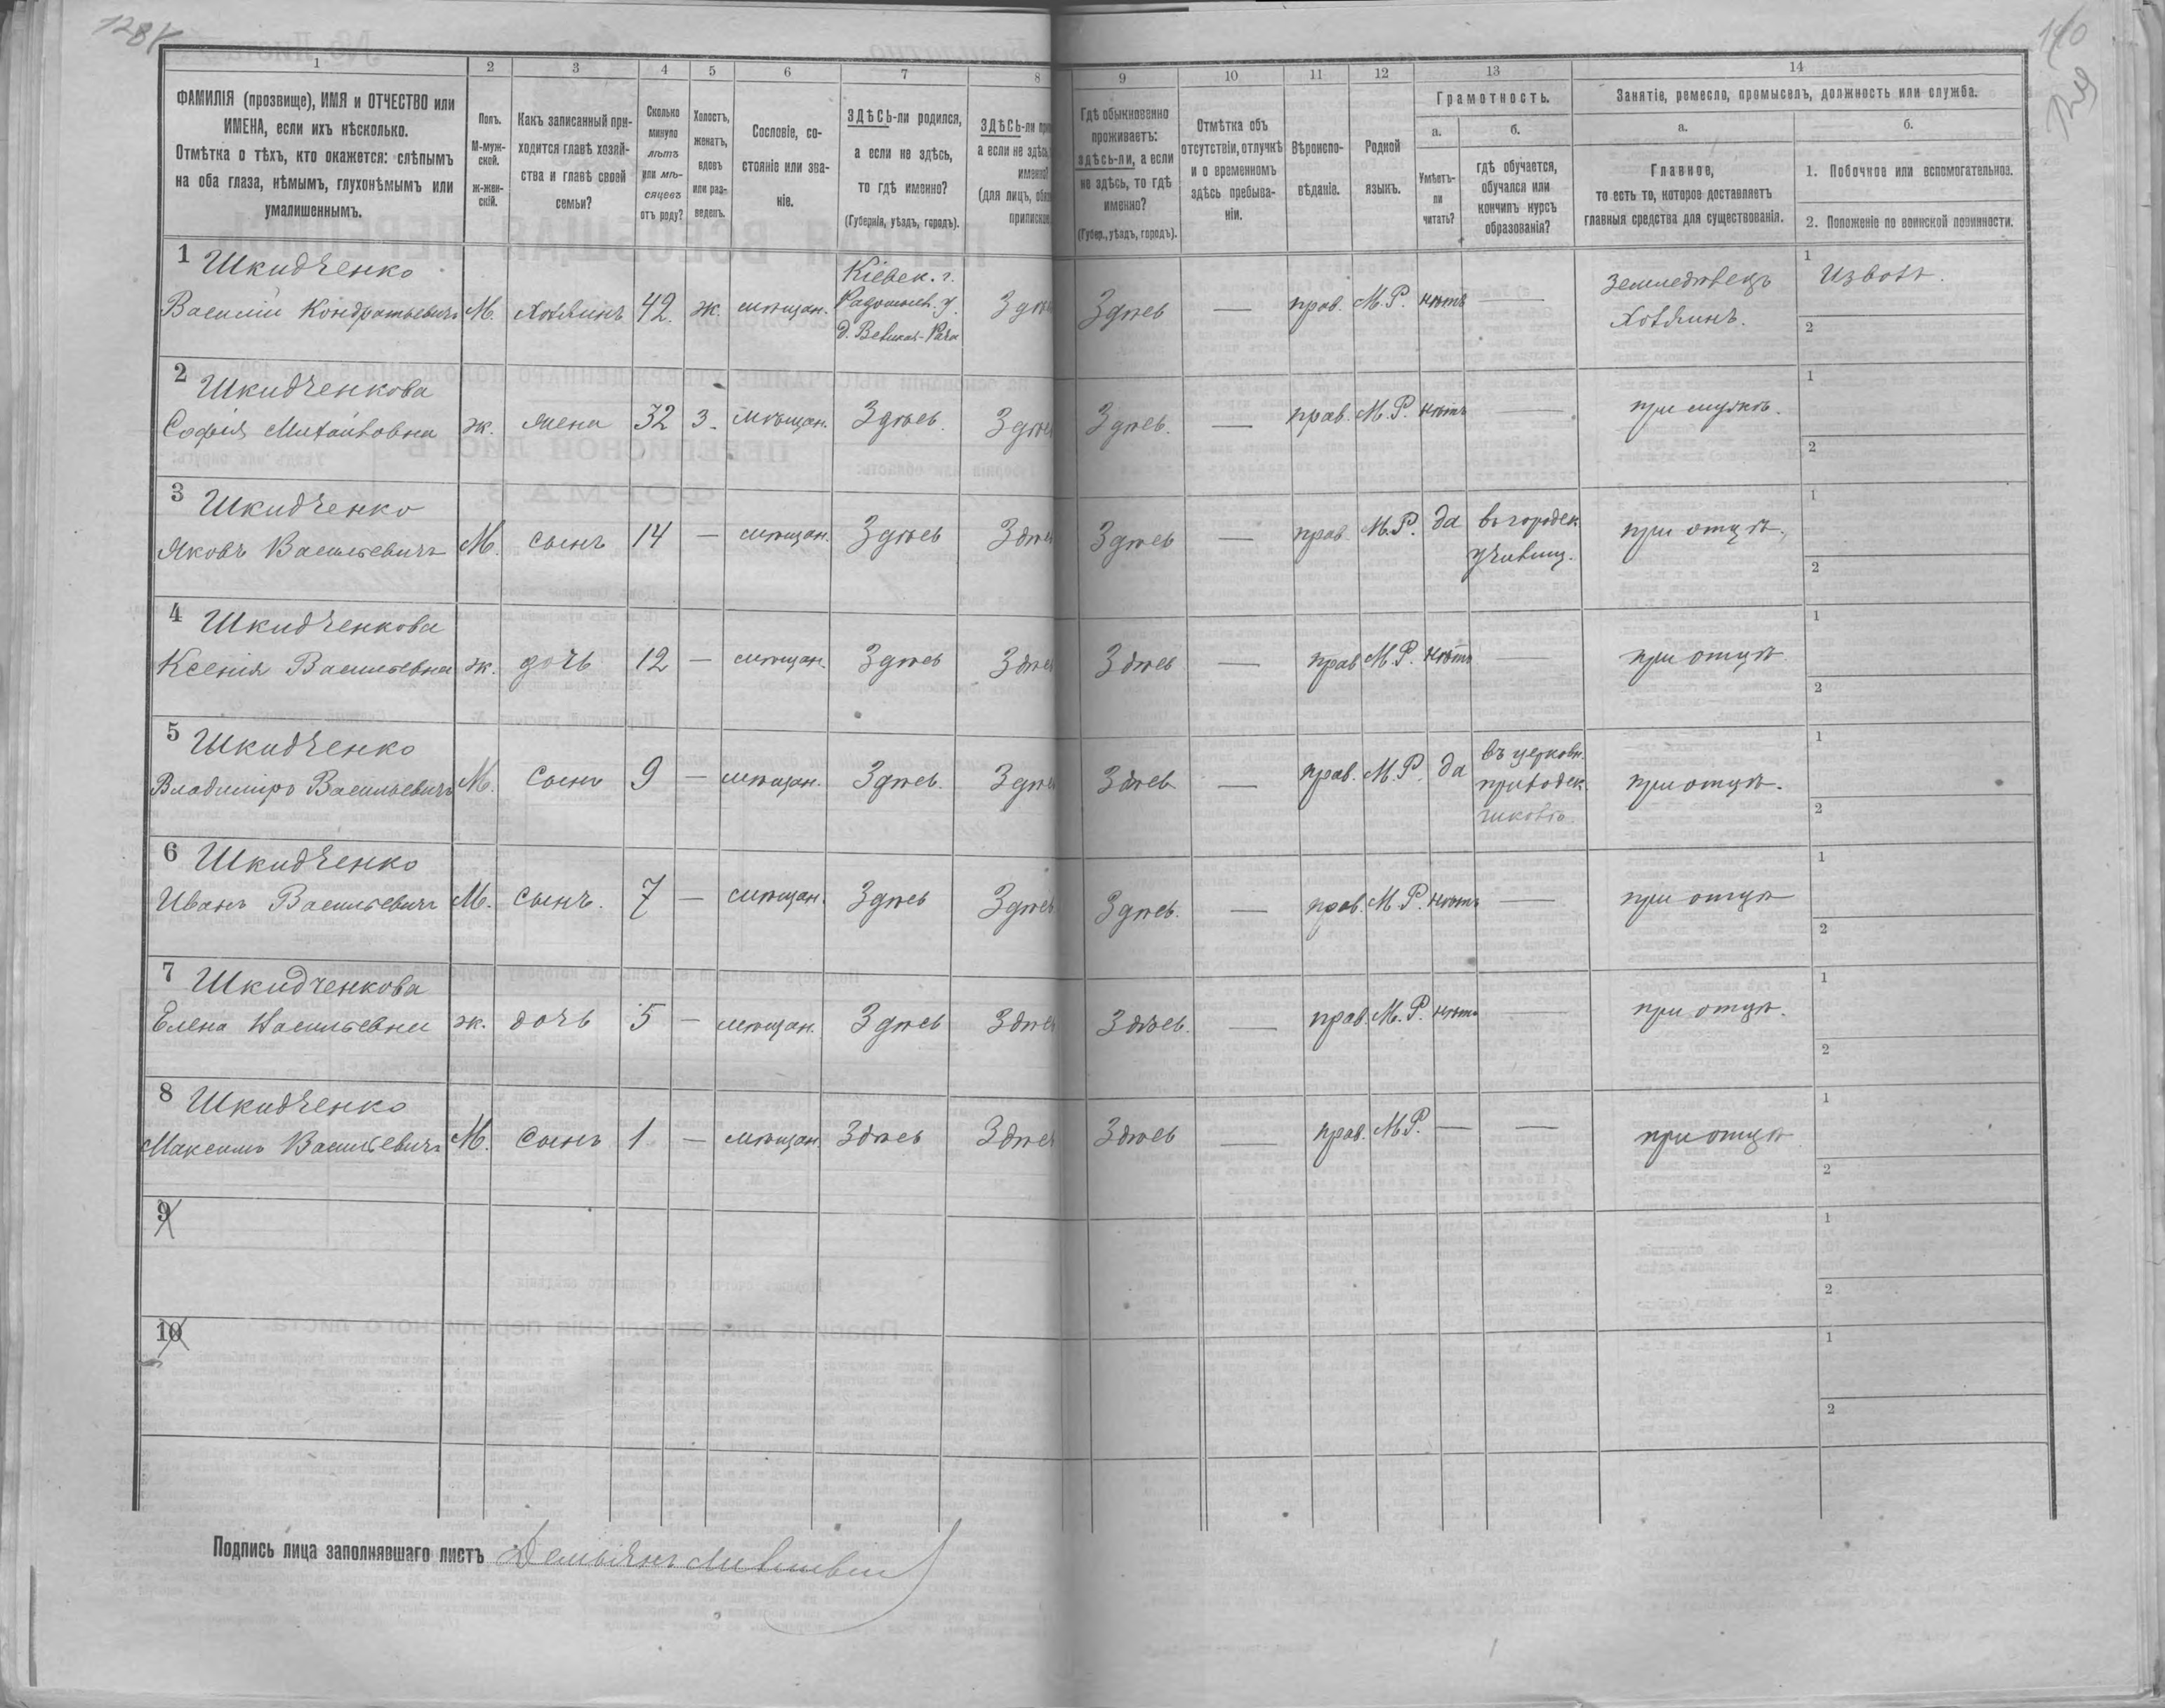 128
140
1 2 3 4 5 6 7 8 9 10 11 12 13 14
ФАМИЛІЯ (прозвище), ИМЯ и ОТЧЕСТВО или
ИМЕНА, если ихъ нѣсколько.
Отмѣтка о тѣхъ, кто окажется: слѣпымъ
на оба глаза, нѣмымъ, глухонѣмымъ или
умалишеннымъ.
Полъ.
М-муж-
ской.
ж-жен-
скій.
Какъ записанный при-
ходится главѣ хозяй-
ства и главѣ своей
семьи?
Сколько
минуло
лѣтъ
или мѣ-
сяцевъ
отъ роду?
Холостъ,
женатъ,
вдовъ
или раз-
веденъ.
Сословіе, со-
стояніе или зва-
ніе.
ЗДѢСЬ-ли родился,
а если не здѣсь,
то гдѣ именно?
(Губернія, уѣздъ, городъ).
ЗДѢСЬ-ли
а если не здѣсь
именно?
(для лицъ,
Гдѣ обыкновенно
проживаетъ:
здѣсь-ли, а если
не здѣсь, то гдѣ
именно?
(Губер., уѣздъ, городъ).
Отмѣтка объ
отсутствіи, отлучкѣ
и о временномъ
здѣсь пребыва-
ніи.
Вѣроиспо-
вѣданіе.
Родной
языкъ.
Грамотность.
а.
Умѣетъ-
ли
читать?
б.
гдѣ обучается,
обучался или
кончилъ курсъ
образованія?
Занятіе, ремесло, промыселъ, должность или служба.
а.
Главное,
то есть то, которое доставляетъ
главныя средства для существованія.
б.
1. Побочное или вспомогательное.
2. Положеніе по воинской повинности.
1 Шкидченко Кіевск. г. Земледѣлецъ 1 Извозъ.
Василій Кондратьевичъ М. хозяинъ 42. ж. мѣщан. Радомысл. у. Здѣсь — прав. М.Р. нѣтъ — Хозяинъ. 2
2 Шкидченкова 1
Софія Михайловна ж. жена 32 з. мѣщан. Здѣсь. Здѣсь. — прав. М.Р. нѣтъ — при мужѣ. 2
3 Шкидченко въ городск. 1
Яковъ Васильевичъ М. сынъ 14 — мѣщан. Здѣсь Здѣсь — прав. М.Р. да училищ. при отцѣ. 2
4 Шкидченкова 1
Ксенія Васильевна ж. дочь 12 — мѣщан. Здѣсь Здѣсь — прав. М.Р. нѣтъ — при отцѣ. 2
5 Шкидченко въ церковн. 1
Владиміръ Васильевичъ М. сынъ 9 — мѣщан. Здѣсь. Здѣсь — прав. М.Р. да приходск. при отцѣ. 2
школѣ.
6 Шкидченко 1
Иванъ Васильевичъ М. сынъ. 7 — мѣщан. Здѣсь Здѣсь Здѣсь. — прав. М.Р. нѣтъ — при отцѣ 2
7 Шкидченкова 1
Елена Васильевна ж. дочь 5 — мѣщан. Здѣсь Здѣсь. — прав. М.Р. нѣтъ — при отцѣ. 2
8 Шкидченко 1
Максимъ Васильевичъ М. сынъ 1 — мѣщан. Здѣсь Здѣсь — прав. М.Р. — — при отцѣ 2
9 1
2
10 1
2
Подпись лица заполнявшаго листъ Демьянъ